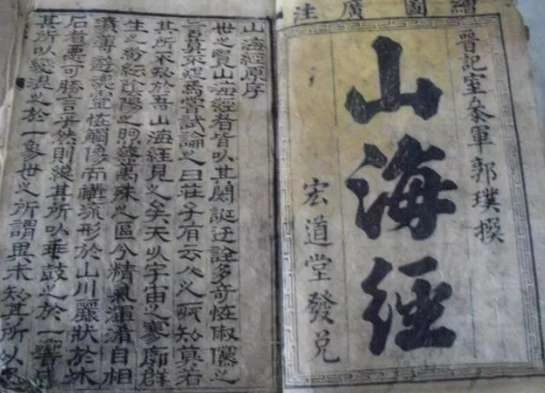 繪圖廣注
晉記室參軍郭璞撰
山海經
宏道堂發兌
山海經原序
世之覽山海經者皆以其閎誕迂誇多奇怪俶儻之
言莫不疑焉嘗試論之曰莊子有云人之所知莫若
其所不知於吾山海經見之矣夫以宇宙之寥廓群
生之紛紜陰陽之煦蒸萬殊之區分精氣渾淆自相
濆薄遊魂靈怪觸像而構流形於山川麗狀於木
石者惡可勝言乎然則總其所以乖鼓之於一響成
其所以變混之於一象世之所謂異未知其所以